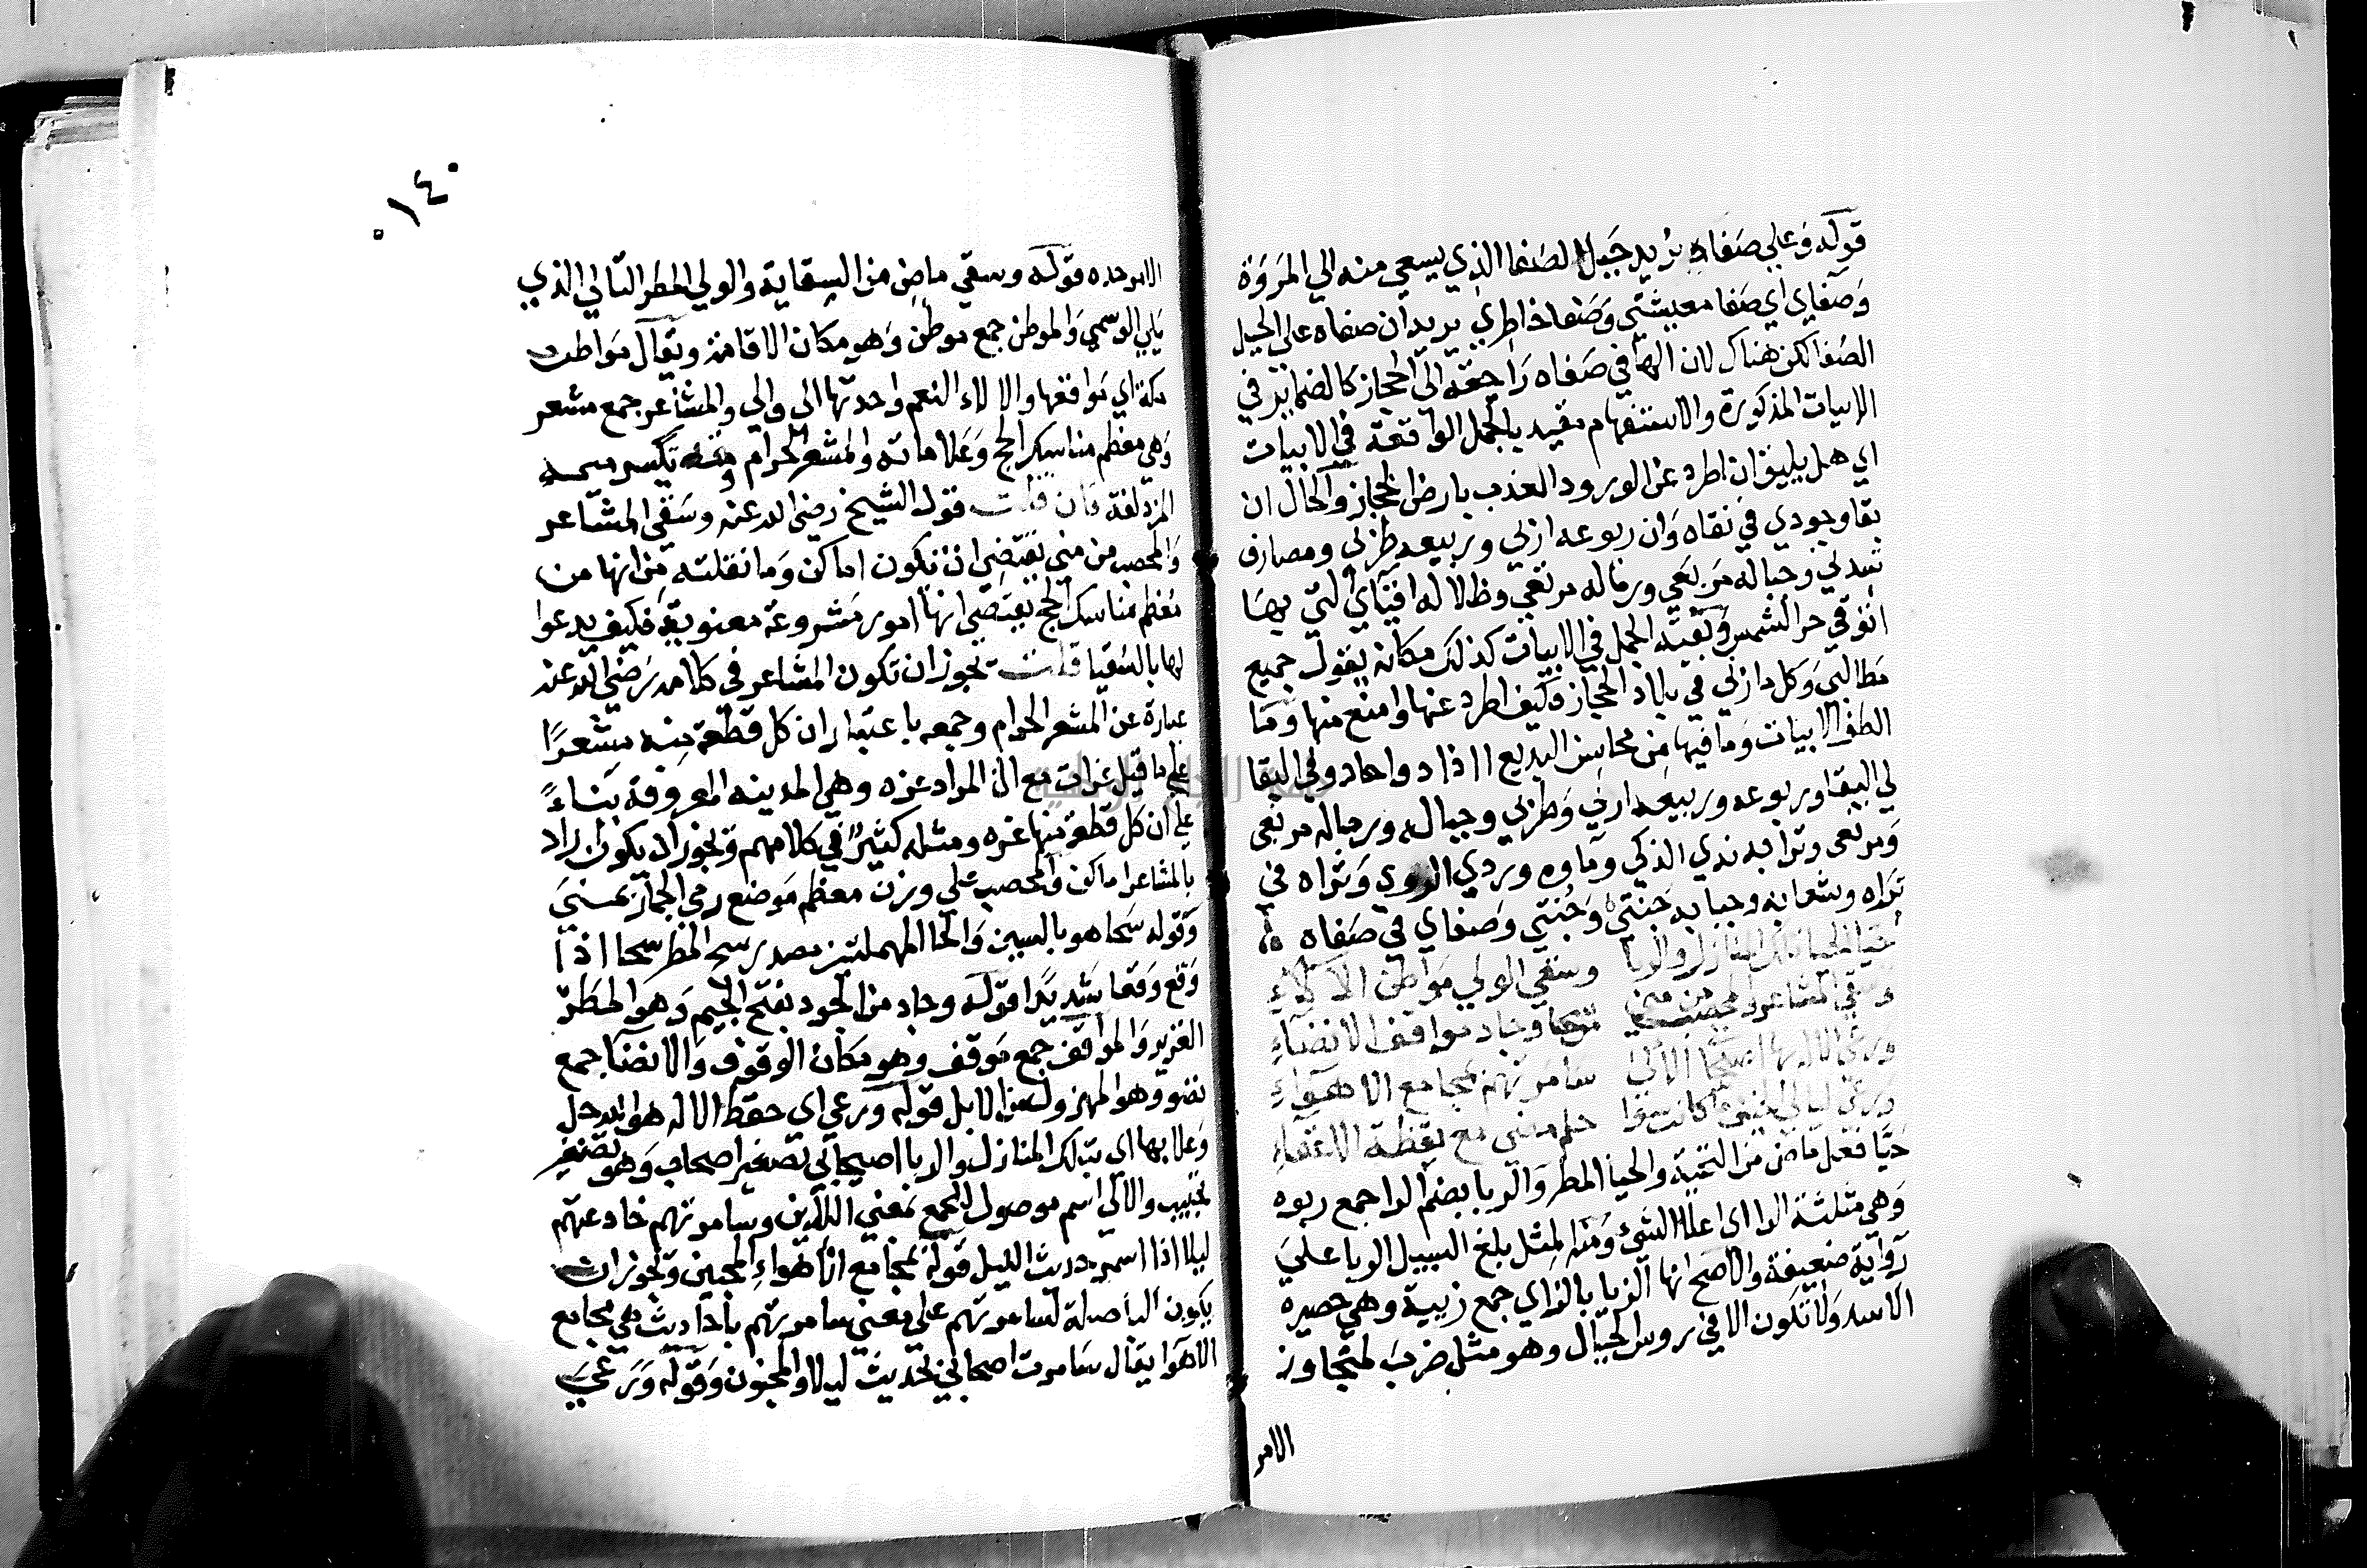 قوله وعلي صفاه يريد جبل الصفا الذي يسعي منه الي المروة
وصفاي اي صفا معيشتي وصفا خاطري يريد ان صفاه علي الجبل
الصفا لكن هناك لان الها في صفاه راجعة الي الحجاز كالضماير في
الابيات المذكورة والاستفهام مقيد بالجمل الواقعة في الابيات
اي هل يليق ان اطرد عن الورود العذب بارض الحجاز والحال ان
بقا وجودي في نقاه وان ربوعه اربي وربيعه طربي ومصارف
شدتي وجباله مربعي ورماله مرتعي وظلاله افيائي التي بها
اتوقي حر الشمس وبقية الجمل في الابيات كذلك مكانه يقول جميع
مطالبي وكل ماربي في بلاد الحجاز فكيف اطرد عنها وامنع منها وما
الطف الابيات وما فيها من محاسن البديع اذ اذاد واحاد وفي النقا
لي البقا وربوعه وربيعه اربي وطربي وجباله ورماله مربعي
ومرتعي وترابه ندي الذكي وماوه وردي الروي وثراه في
ثراه وشعابه وقبابه جنتي وجنتي وصفاي في صفاه
حيا الحيا تلك المنازل والربا وسقي الولي مواطن الالاء
وسقي المشاعر والمحصب من مني سحا وجاد مواقف الانضاء
ورعي الاله بها اصيحابي الالي سامرتهم بمجامع الاهواء
ورعي ليالي الخيف ما كانت سوا حلم مضي مع يقظة الاغفاء
حيا فعل ماض من التحية والحيا المطر والربا بضم الرا جمع ربوه
وهي مثلثة الرا اي اعلا الشي ومنه المثل بلغ السيل الربا علي
رواية ضعيفة والاصح انها الزبا بالزاي جمع زبية وهي حصيره
الاسد ولا تكون الا في روس الجبال وهو مثل ضرب لتجاوز
الامر
٠١٤٠
الامر حده قوله وسقي ماض من السقاية والولي المطر الثاني الذي
يلي الوسمي والمواطن جمع موطن وهو مكان الاقامة ويقال مواطن
مكة اي مواقفها والالاء النعم واحدتها الي والي والمشاعر جمع مشعر
وهي معظم مناسك الحج وعلاماته والمشعر الحرام وقد تكسر ميمه
المزدلفة فان قلت قول الشيخ رضي الله عنه وسقي المشاعر
والمحصب من مني يقتضي ان تكون اماكن وما نقلته من انها من
معظم مناسك الحج يقتضي انها امور مشروعة معنوية فكيف يدعوا
لها بالسقيا قلت يجوز ان تكون المشاعر في كلامه رضي الله عنه
عبارة عن المشعر الحرام وجمعه باعتبار ان كل قطعة منه مشعرا
علي ما قيل غزات مع ان المراد غزه وهي المدينه المعروفة بناء
علي ان كل قطعة منها غزه ومثله كثير في كلامهم ويجوز ان يكون اراد
بالمشاعر اماكن والمحصب علي وزن معظم موضع رمي الجمار بمني
وقوله سحا هو بالسين والحا المهملتين مصدر سح المطر سحا اذا
وقع وقعا شديدا قوله وجاد من الجود بفتح الجيم وهو المطر
الغزير والمواقف جمع موقف وهو مكان الوقوف والانضا جمع
نضو وهو المهزول من الابل قوله ورعي اي حفظ الاله هو الله جل
وعلا بها اي بتلك المنازل والربا اصيحابي تصغير اصحاب وهو تصغير
تحبيب والالي اسم موصول للجمع بمعني اللذين وسامرتهم حادثتهم
ليلا اذا السمر حديث الليل قوله بمجامع الاهواء المحبين ويجوز ان
يكون البا صلة لسامرتهم علي معني سامرتهم باحاديث هي مجامع
الاهوا يقال سامرت اصحابي بحديث ليلا والمجنون وقوله ورعي